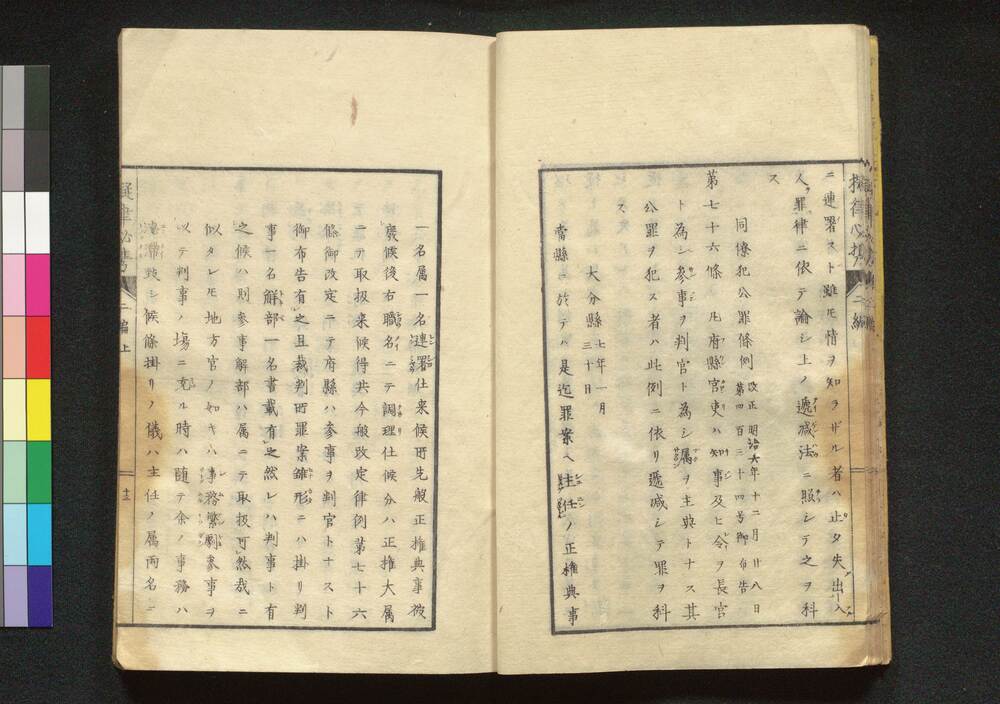 ニ連署スト雖モ情ヲ知ラザル者ハ止タ失出入
人罪律ニ依テ論シ上ノ遞减法ニ照シテ之ヲ科
ス
同僚犯公罪條例 改正 明治六年十二月廿八日
第四百三十四号御布告
第七十六條凡府縣官吏ハ知事及ヒ令ヲ長官
ト為シ参事ヲ判官ト為シ属ヲ主典トナス其
公罪ヲ犯ス者ハ此例ニ依リ遞减シテ罪ヲ科
ス
大分縣 七年一月
三十日
當縣ニ於テハ是迄罪案ヘ主任ノ正権典事
一名属一名連署仕来候所先般正権典事被
廃候後右職名ニテ調理仕候分ハ正権大属
ニテ取扱来候得共今般改定律例第七十六
條御改定ニテ府縣ハ参事ヲ判官トナスト
御布告有之且裁判所罪案雛形ニハ掛リ判
事一名解部一名書載有之然レハ判事ト有
之候ハ則参事解部ハ属ニテ取扱可然哉ニ
似タレモ地方官ノ如キハ事務繁劇参事ヲ
以テ判事ノ場ニ充ル時ハ随テ余ノ事務ハ
シ候條掛リノ儀ハ主任ノ属両名ニ
擬律必携
二編上
十三